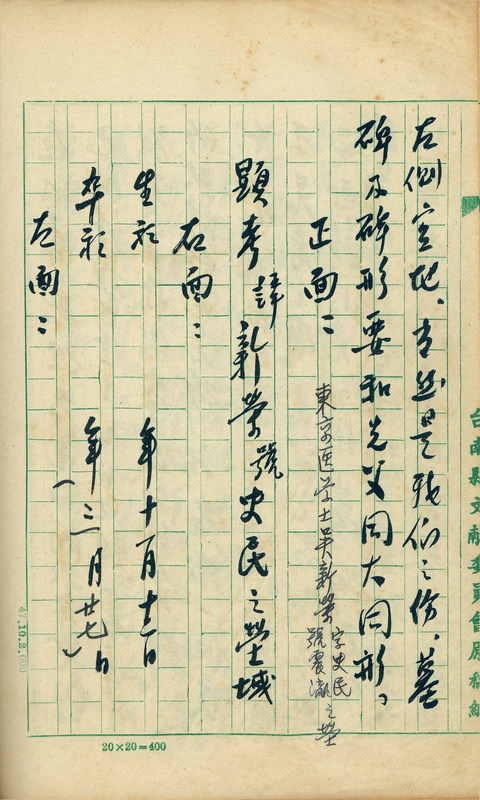 台南縣文獻委員會原稿紙
左側空地、當然是我们之份、墓
碑及碑形要和先父同大同形。
正面：
東京医学士吴新榮字史民號震瀛之塋
顯考諱新榮號史民之塋域
右面：
生於 年十一月十二日
卒於 年(三月廿七)日
左面：
20×20=400
47.10.2.000